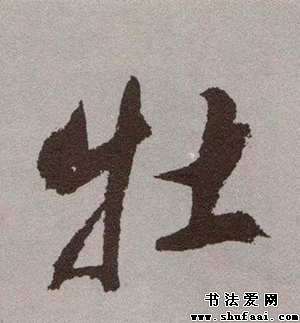 牡
书法爱网
www.shufaai.com